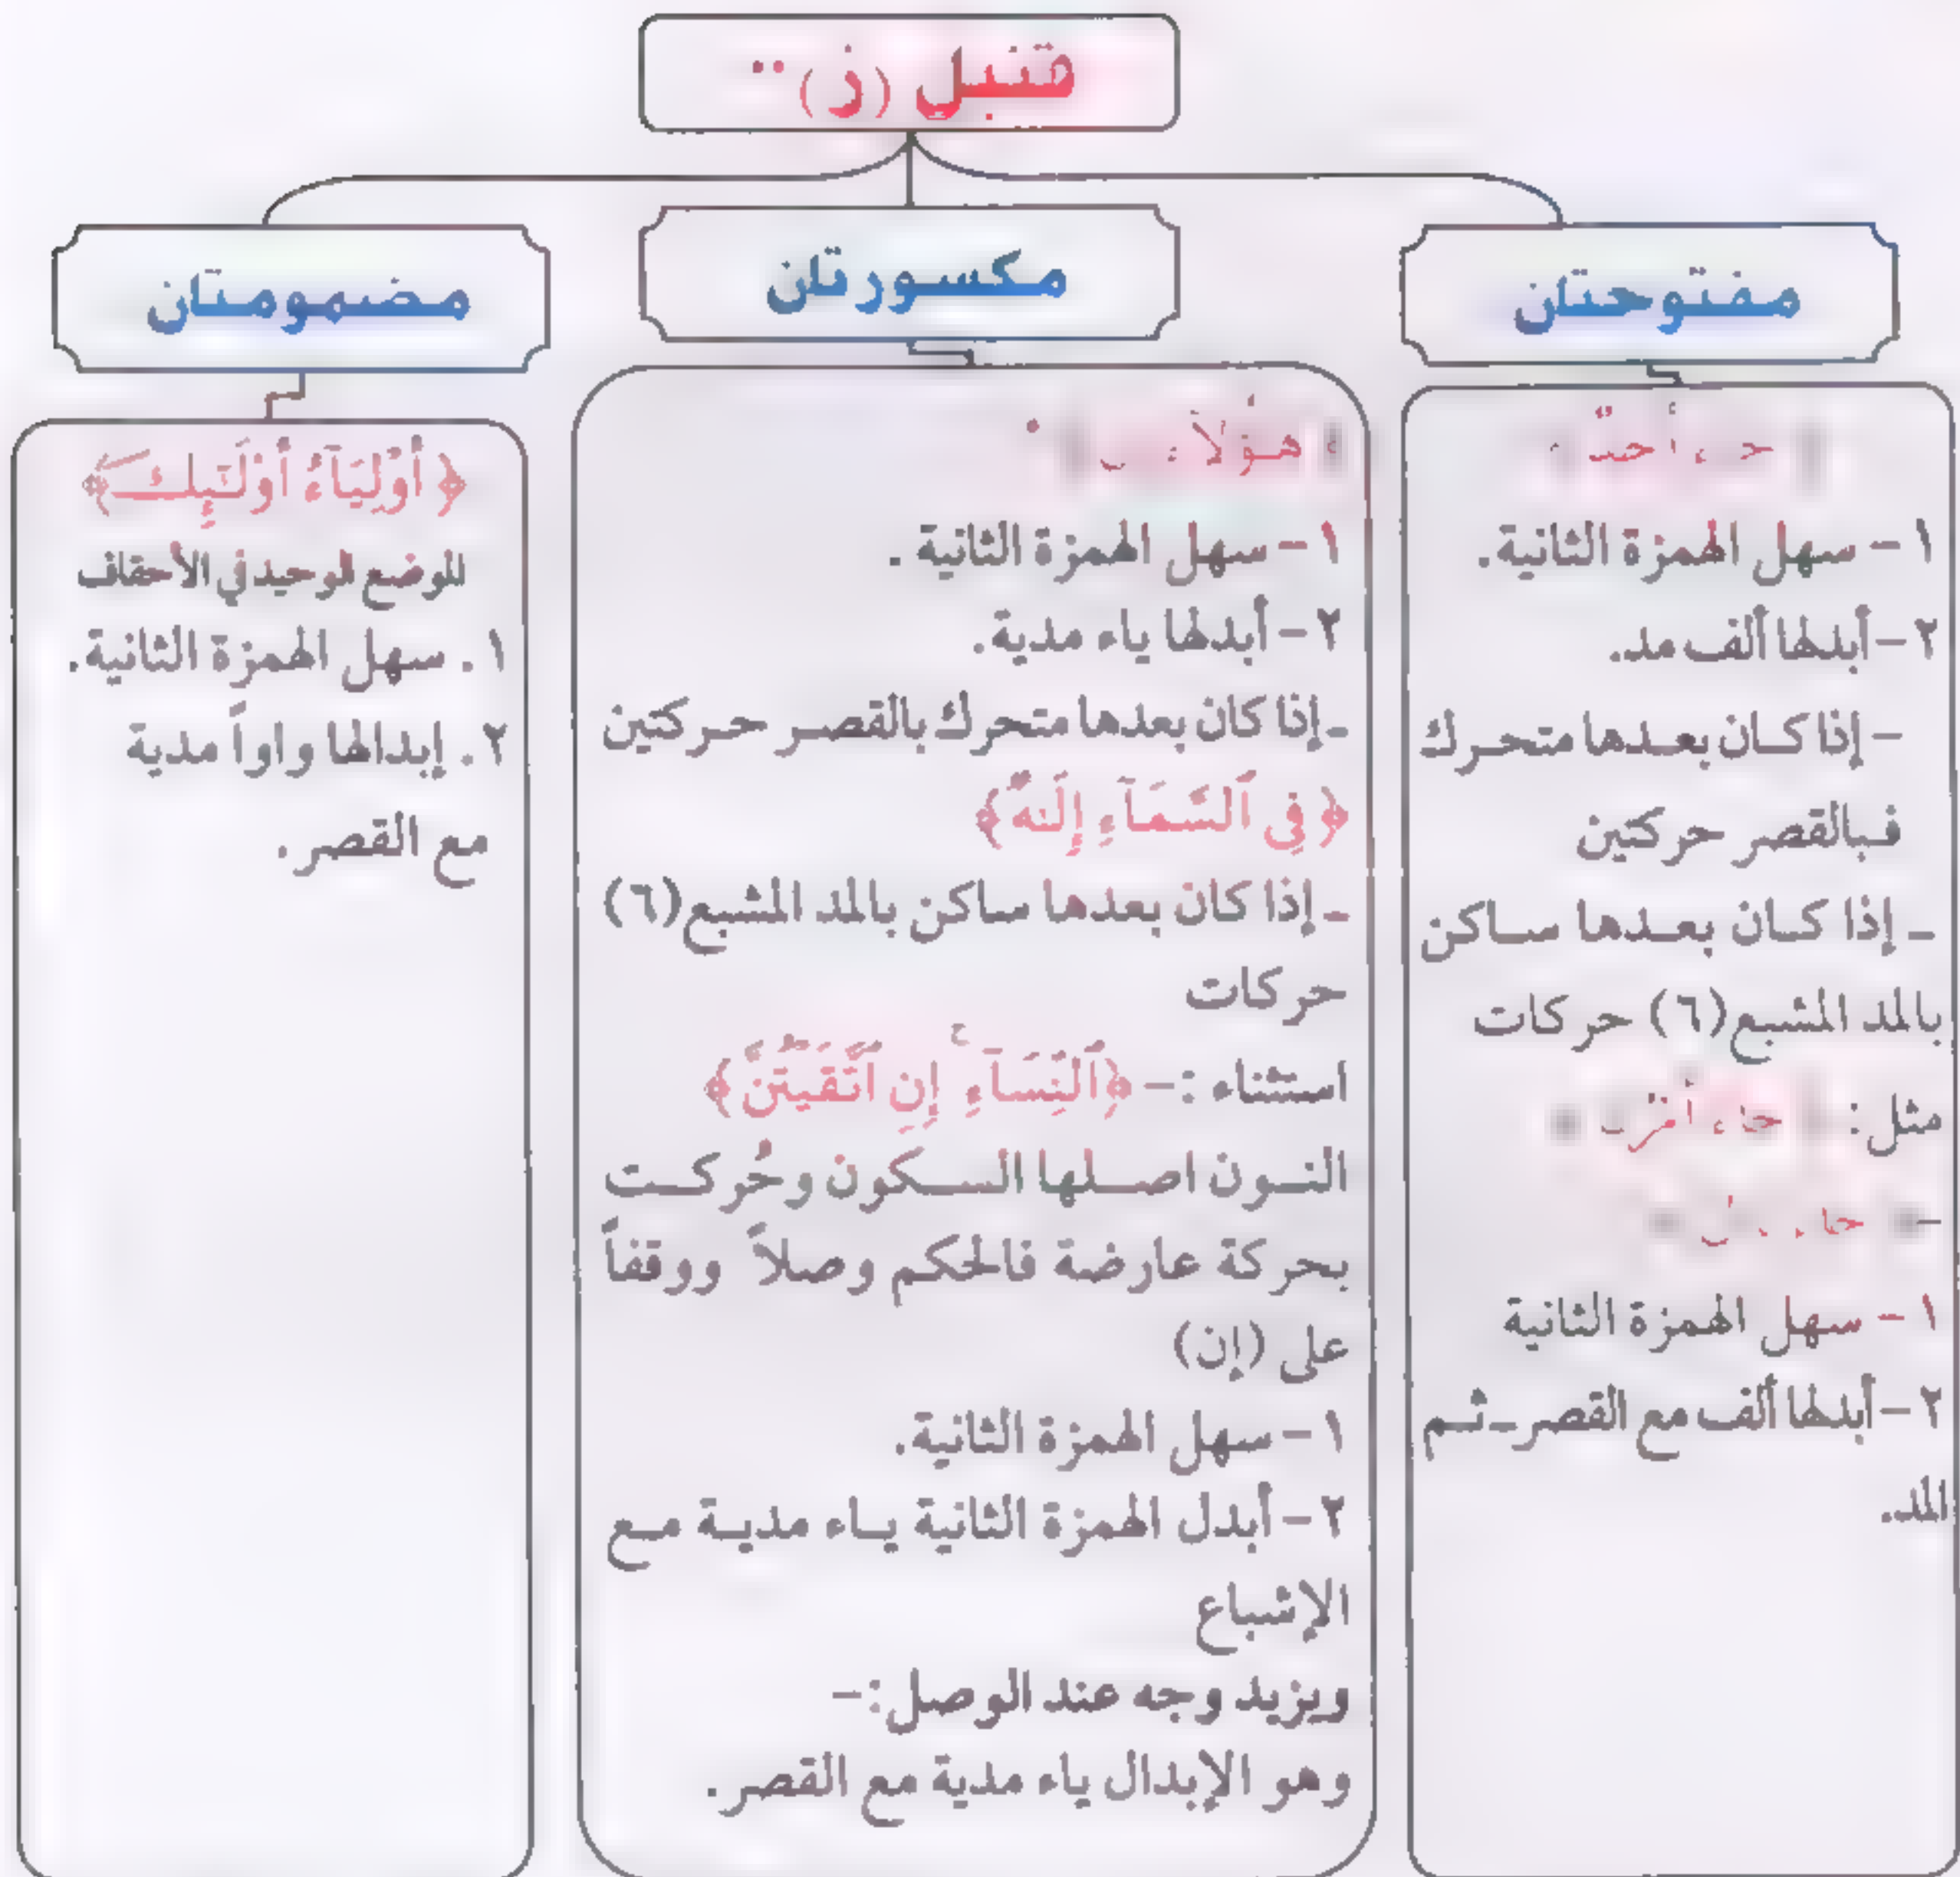 قنبل (ز)
مفتوحتان
مكسورتان
مضمومتان
١- سهل الهمزة الثانية.
٢- أبدلها ألف مد.
- إذا كان بعدها متحرك
فبالقصر حركتين
- إذا كان بعدها ساكن
بالمد المشبع (٦) حركات
مثل:
١- سهل الهمزة الثانية
٢- أبدلها ألف مع القصر - ثم
المد.
هؤلاء
١- سهل الهمزة الثانية.
٢- أبدلها ياء مدية.
- إذا كان بعدها متحرك بالقصر حركتين
﴿فِي ٱلسَّمَآءِ إِلَٰهٌ﴾
- إذا كان بعدها ساكن بالمد المشبع (٦)
حركات
استثناء :- ﴿ٱلنِّسَآءِ إِنِ ٱتَّقَيۡتُنَّ﴾
النون اصلها السكون وحُركت
بحركة عارضة فالحكم وصلاً ووقفاً
على (إن)
١- سهل الهمزة الثانية.
٢- أبدل الهمزة الثانية ياء مدية مع
الإشباع
ويزيد وجه عند الوصل:-
وهو الإبدال ياء مدية مع القصر.
﴿أَوۡلِيَآءُ أُوْلَٰٓئِكَ﴾
الموضع الوحيد في الأحقاف
١. سهل الهمزة الثانية.
٢. إبدالها واواً مدية
مع القصر.